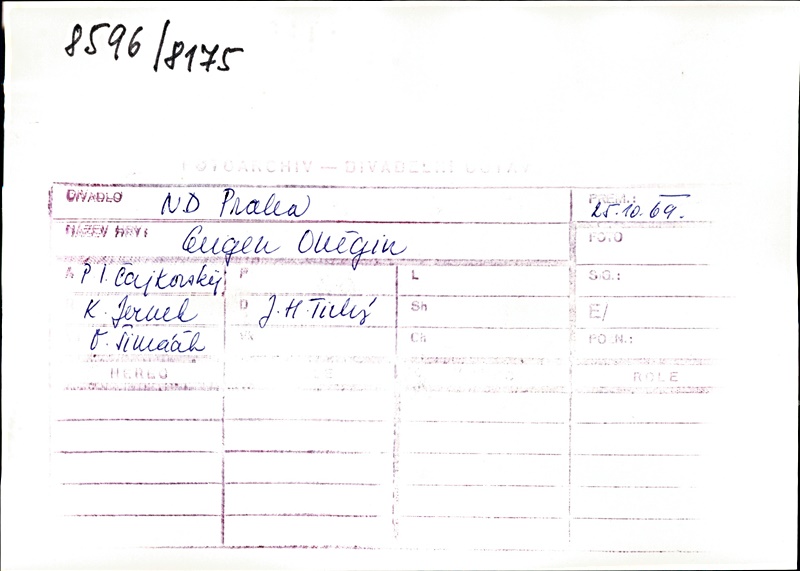 8596/8175
FOTOARCHIV — DIVADELNÍ ÚSTAV
DIVADLO N.D Praha PREM.: 25.10.69.
NÁZEV HRY: Eugen Oněgin FO.O
A P. I. Čajkovský P L S.G.:
K. Jernek D J. H. Tichý Sh E/
O. Šimáček Ch PO.N.:
HEREC ROLE